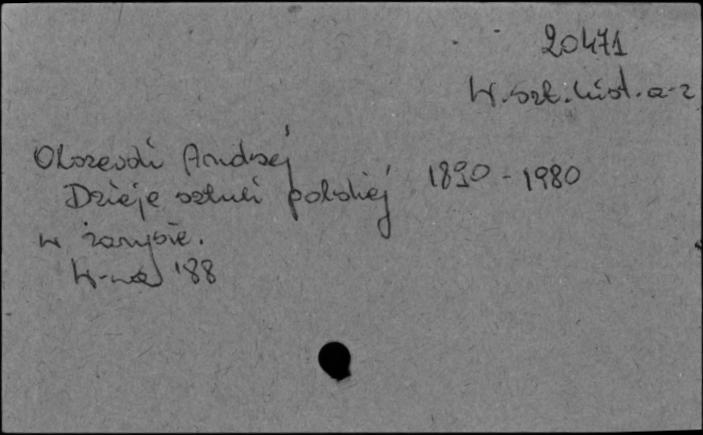 20471
W. szt. hist. a-z
Olszewski Andrzej
Dzieje sztuki polskiej 1890 - 1980
w zarysie.
W-wa '88